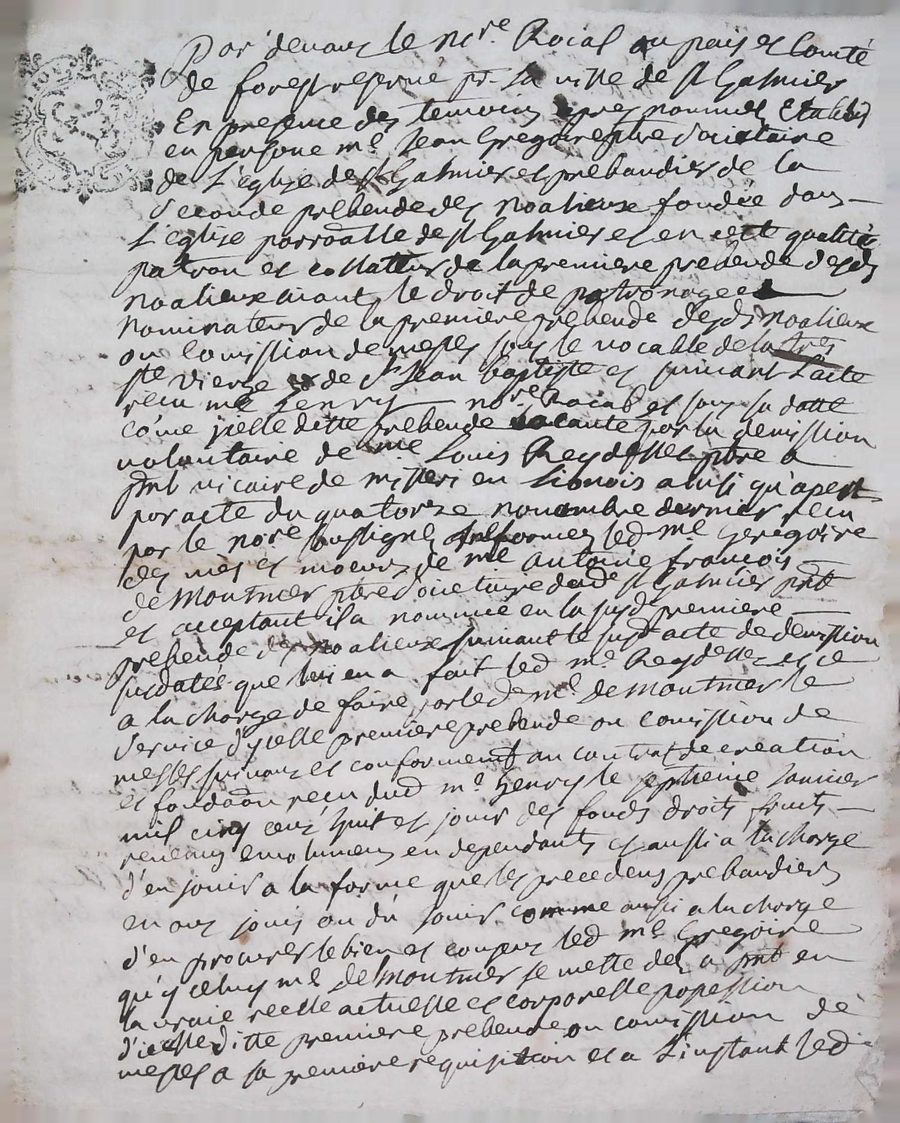 Par devant le no.re Roial au pais et Comté
de forest reservé p.r la ville de St Galmier
En presence des temoins apres nommés Etablis
en persone m.e Jean Gregoire ptre Societaire
de L'eglize de St Galmier et prebandier de la
Seconde prebende des noalieux fondée dans
L'eglize parroalle de St Galmier et en cette qualité
patron et collatteur de la premiere prebende desds
noalieux aiant le droit de patronage et
nominateur de la premiere prebende desds noalieux
ou comission de messes sous le vocable de la tres
ste Vierge et de St Jean baptiste et suivant Lacte
recu me henrys no.re Roial et sous sa datte
come jcelle ditte prebende vacante par la demission
volontaire de me Louis Reydellet ptre a
pnt vicaire de en Lionois ainsi qu'apert
par acte du quatorze novembre dernier recu
par le no.re informez led me gregoire
des vies et moeurs de me antoine françois
de Montmer ptre Societaire dud St Galmier pnt
et acceptant il a nommée en la susd premiere
prebende des noalieux suivant le susd acte de demission
susdatés que lui en a fait led me Reydellet et ce
a la charge de faire par led me de Montmer le
Service d'ycelle premiere prebende ou comission de
messes suivant et conforment au contrat de creation
et fondaon recu dud me henrys le septieme Janvier
mil cinq cent huit et jouir des fonds droits fruits
revenus emolumens en dependants et aussi a la charge
d'en jouir a la forme que les precedens prebandiers
en ont jouis ou dû jouir comme aussi a la charge
d'en procurer le bien et consent led me Gregoire
qu'ycelui me de Montmer se mette des a pnt en
la vraie reelle actuelle et corporelle popession
d'icelle ditte premiere prebende ou comission de
messes a sa premiere requisition et a L'instant led